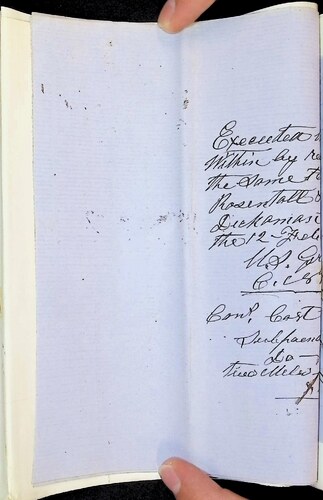 Executed
Within by re
the Same to
Rosentall
Dickamas
the 12 Feb
U.S. G
C. C
Conl. Cost
Subpoena
Do
two Miles